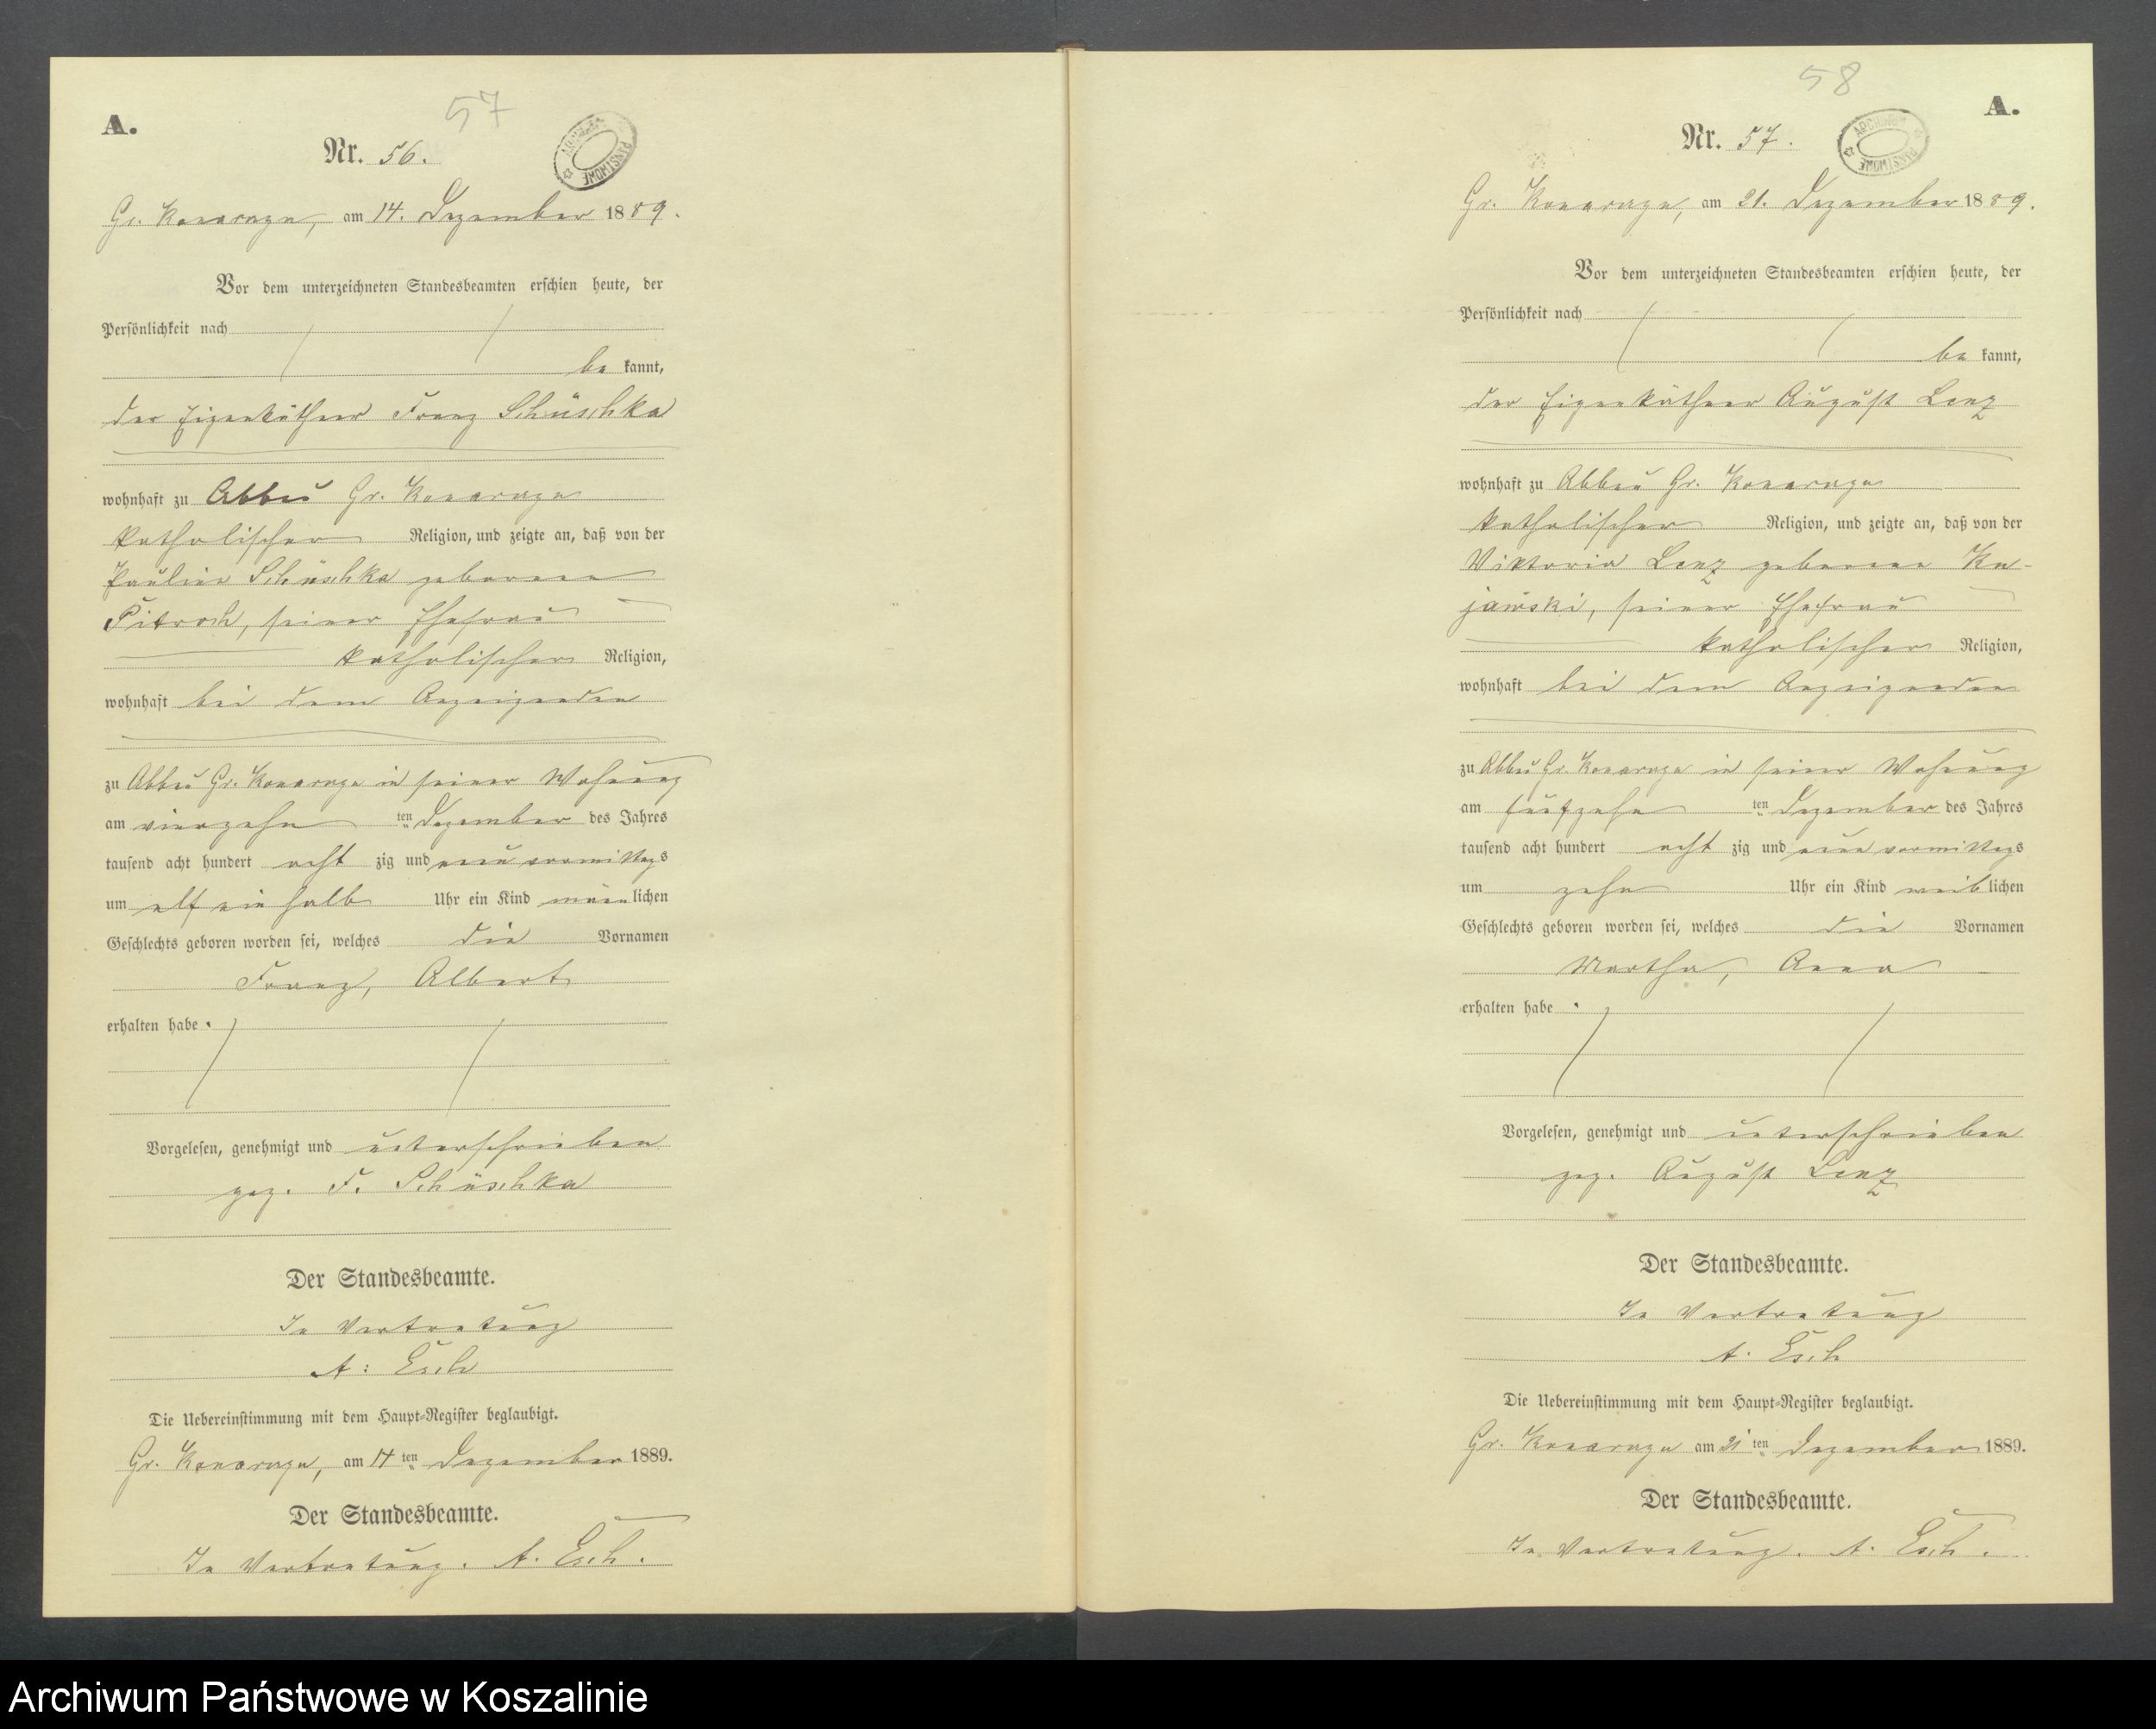 57
A.
Nr. 56.
ARCHIWUM PAŃSTWOWE
Gr. Konarzyn, am 14. Dezember 1889.
Vor dem unterzeichneten Standesbeamten erschien heute, der
Persönlichkeit nach
be kannt,
der Eigenkäthner Franz Schüschka
wohnhaft zu Abbau Gr. Konarzyn
katholischer Religion, und zeigte an, daß von der
Pauline Schüschka geborene
Pitroch, seiner Ehefrau
katholischer Religion,
wohnhaft bei dem Anzeigenden
zu Abbau Gr. Konarzyn in seiner Wohnung
am vierzehn ten Dezember des Jahres
tausend acht hundert acht zig und neun vormittags
um elf ein halb Uhr ein Kind männlichen
Geschlechts geboren worden sei, welches die Vornamen
Franz, Albert
erhalten habe.
Vorgelesen, genehmigt und unterschrieben
gez. F. Schüschka
Der Standesbeamte.
In Vertretung
A. Esch
Die Uebereinstimmung mit dem Haupt-Register beglaubigt.
Gr. Konarzyn, am 14 ten Dezember 1889.
Der Standesbeamte.
In Vertretung. A. Esch.
58
A.
Nr. 57.
ARCHIWUM PAŃSTWOWE
Gr. Konarzyn, am 21. Dezember 1889.
Vor dem unterzeichneten Standesbeamten erschien heute, der
Persönlichkeit nach
be kannt,
der Eigenkäthner August Lenz
wohnhaft zu Abbau Gr. Konarzyn
katholischer Religion, und zeigte an, daß von der
Viktoria Lenz geborene Ku-
jawski, seiner Ehefrau
katholischer Religion,
wohnhaft bei dem Anzeigenden
zu Abbau Gr. Konarzyn in seiner Wohnung
am fünfzehn ten Dezember des Jahres
tausend acht hundert acht zig und neun vormittags
um zehn Uhr ein Kind weiblichen
Geschlechts geboren worden sei, welches die Vornamen
Martha, Anna
erhalten habe.
Vorgelesen, genehmigt und unterschrieben
gez. August Lenz
Der Standesbeamte.
In Vertretung
A. Esch
Die Uebereinstimmung mit dem Haupt-Register beglaubigt.
Gr. Konarzyn am 21 ten Dezember 1889.
Der Standesbeamte.
In Vertretung. A. Esch.
Archiwum Państwowe w Koszalinie